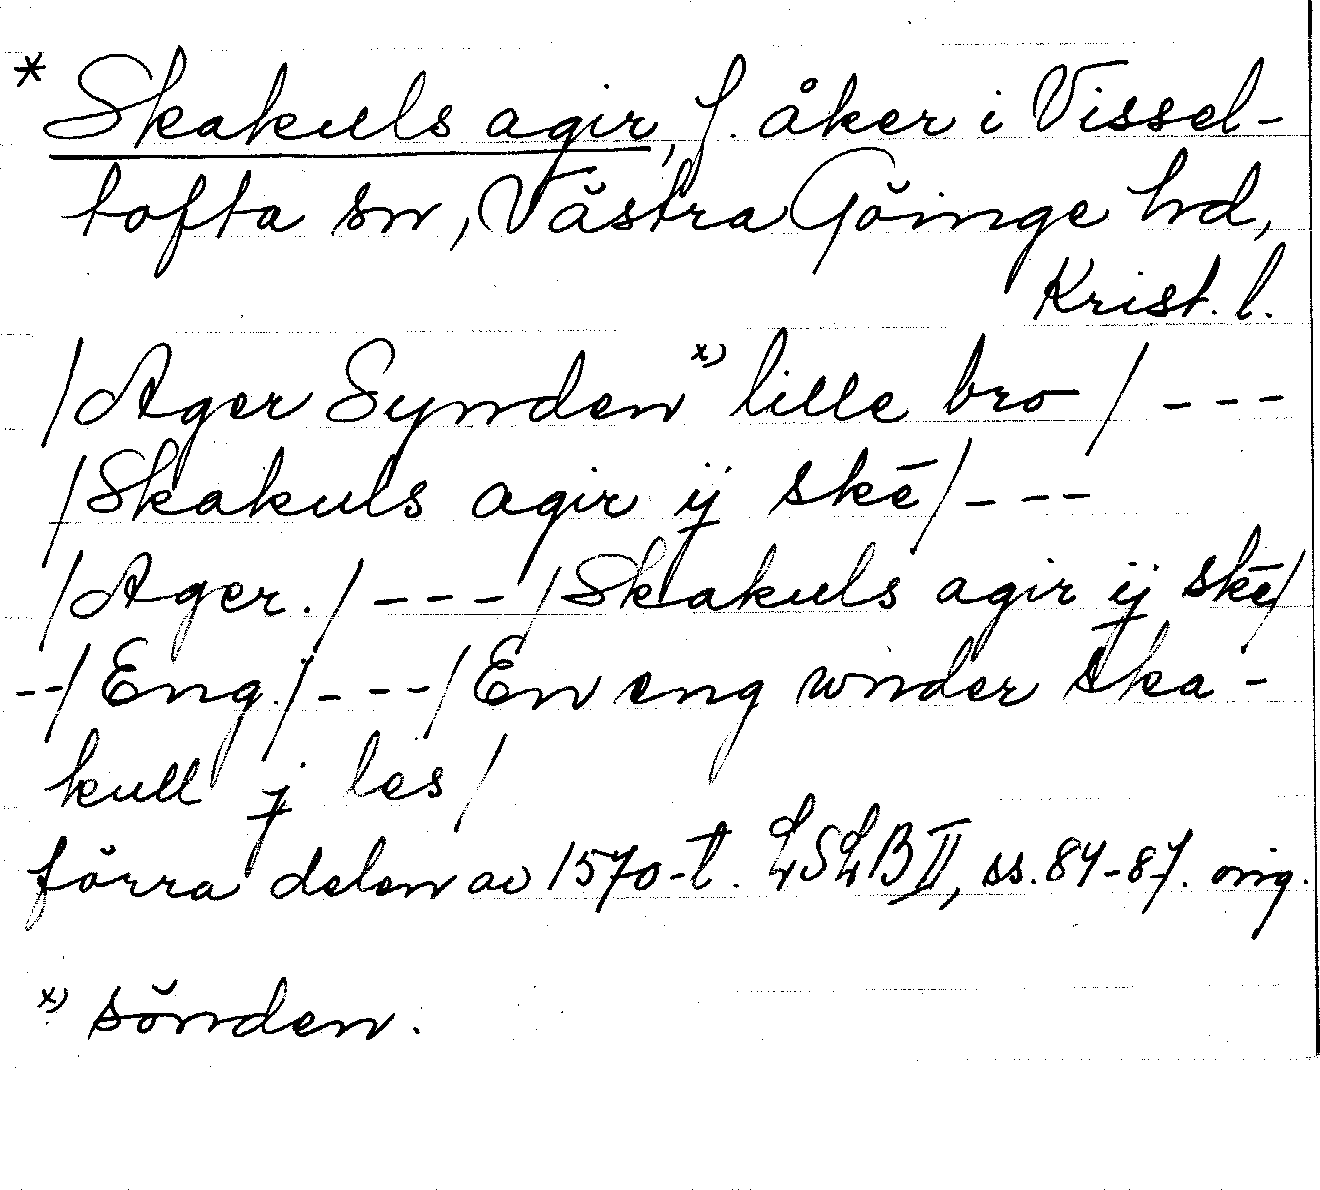 * Skakuls agir, f. åker i Vissel-
tofta sn, Västra Göinge hd,
Krist. l.
/Ager Synden x) lille bro/ ---
/Skakuls agir ij skē/---
/Ager./ --- /Skakuls agir ij skē/
--/Eng./---/En eng wnder ska-
kull j les/
förra delen av 1570-t. LSLB II, ss. 84-87. orig.
x) sönden.